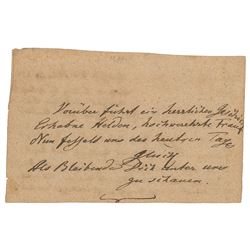 Vorüber führt ein herrliches Geschick
Erhabne Helden, hochverehrte Frauen
Nun fesselt uns des heutren Tags
Glück
Als Bleibende Dich unter uns
zu schauen.